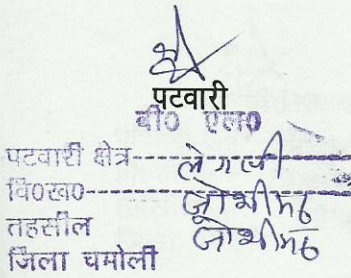 पटवारी
बी0 एल0
पटवारी क्षेत्र
वि0ख0 जोशीमठ
तहसील जोशीमठ
जिला चमोली